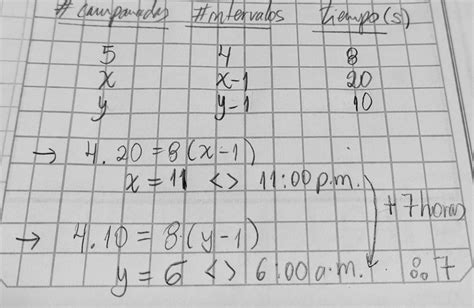 # campanadas #intervalos tiempo(s)
5 4 8
x x-1 20
y y-1 10
→ 4.20=8(x-1)
x = 11 <> 11:00 p.m.
+7 horas
→ 4.10=8(y-1)
y = 6 <> 6:00 a.m. ∴ 7